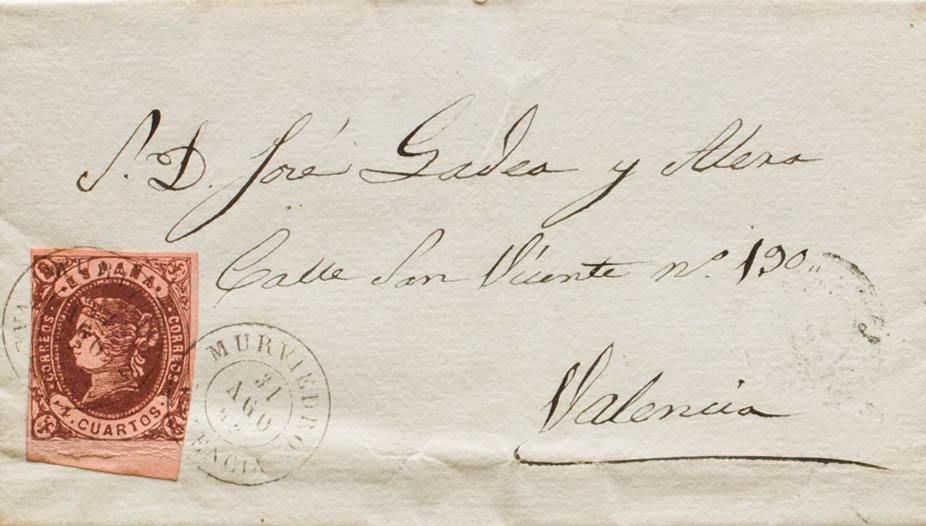 S. D. José Gadea y Alera
Calle San Vicente nº. 190„
Valencia
ESPAÑA
CORREOS CORREOS
4. CUARTOS.
MURVIEDRO
31
AGO